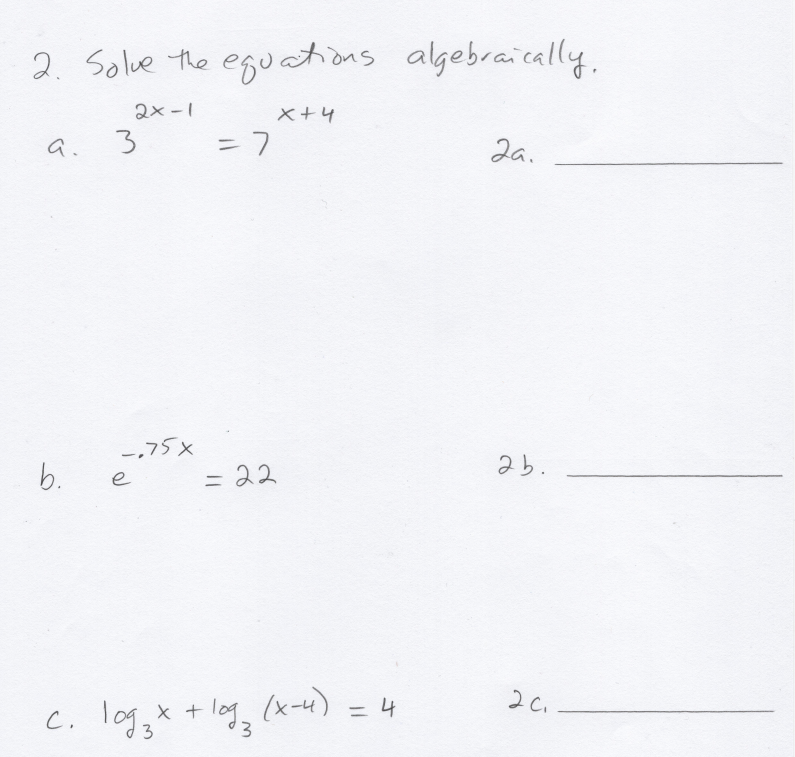 2. Solve the equations algebraically.
a. 3^(2x-1) = 7^(x+4) 2a. ____________
b. e^(-.75x) = 22 2b. ____________
c. log₃x + log₃(x-4) = 4 2c. ____________